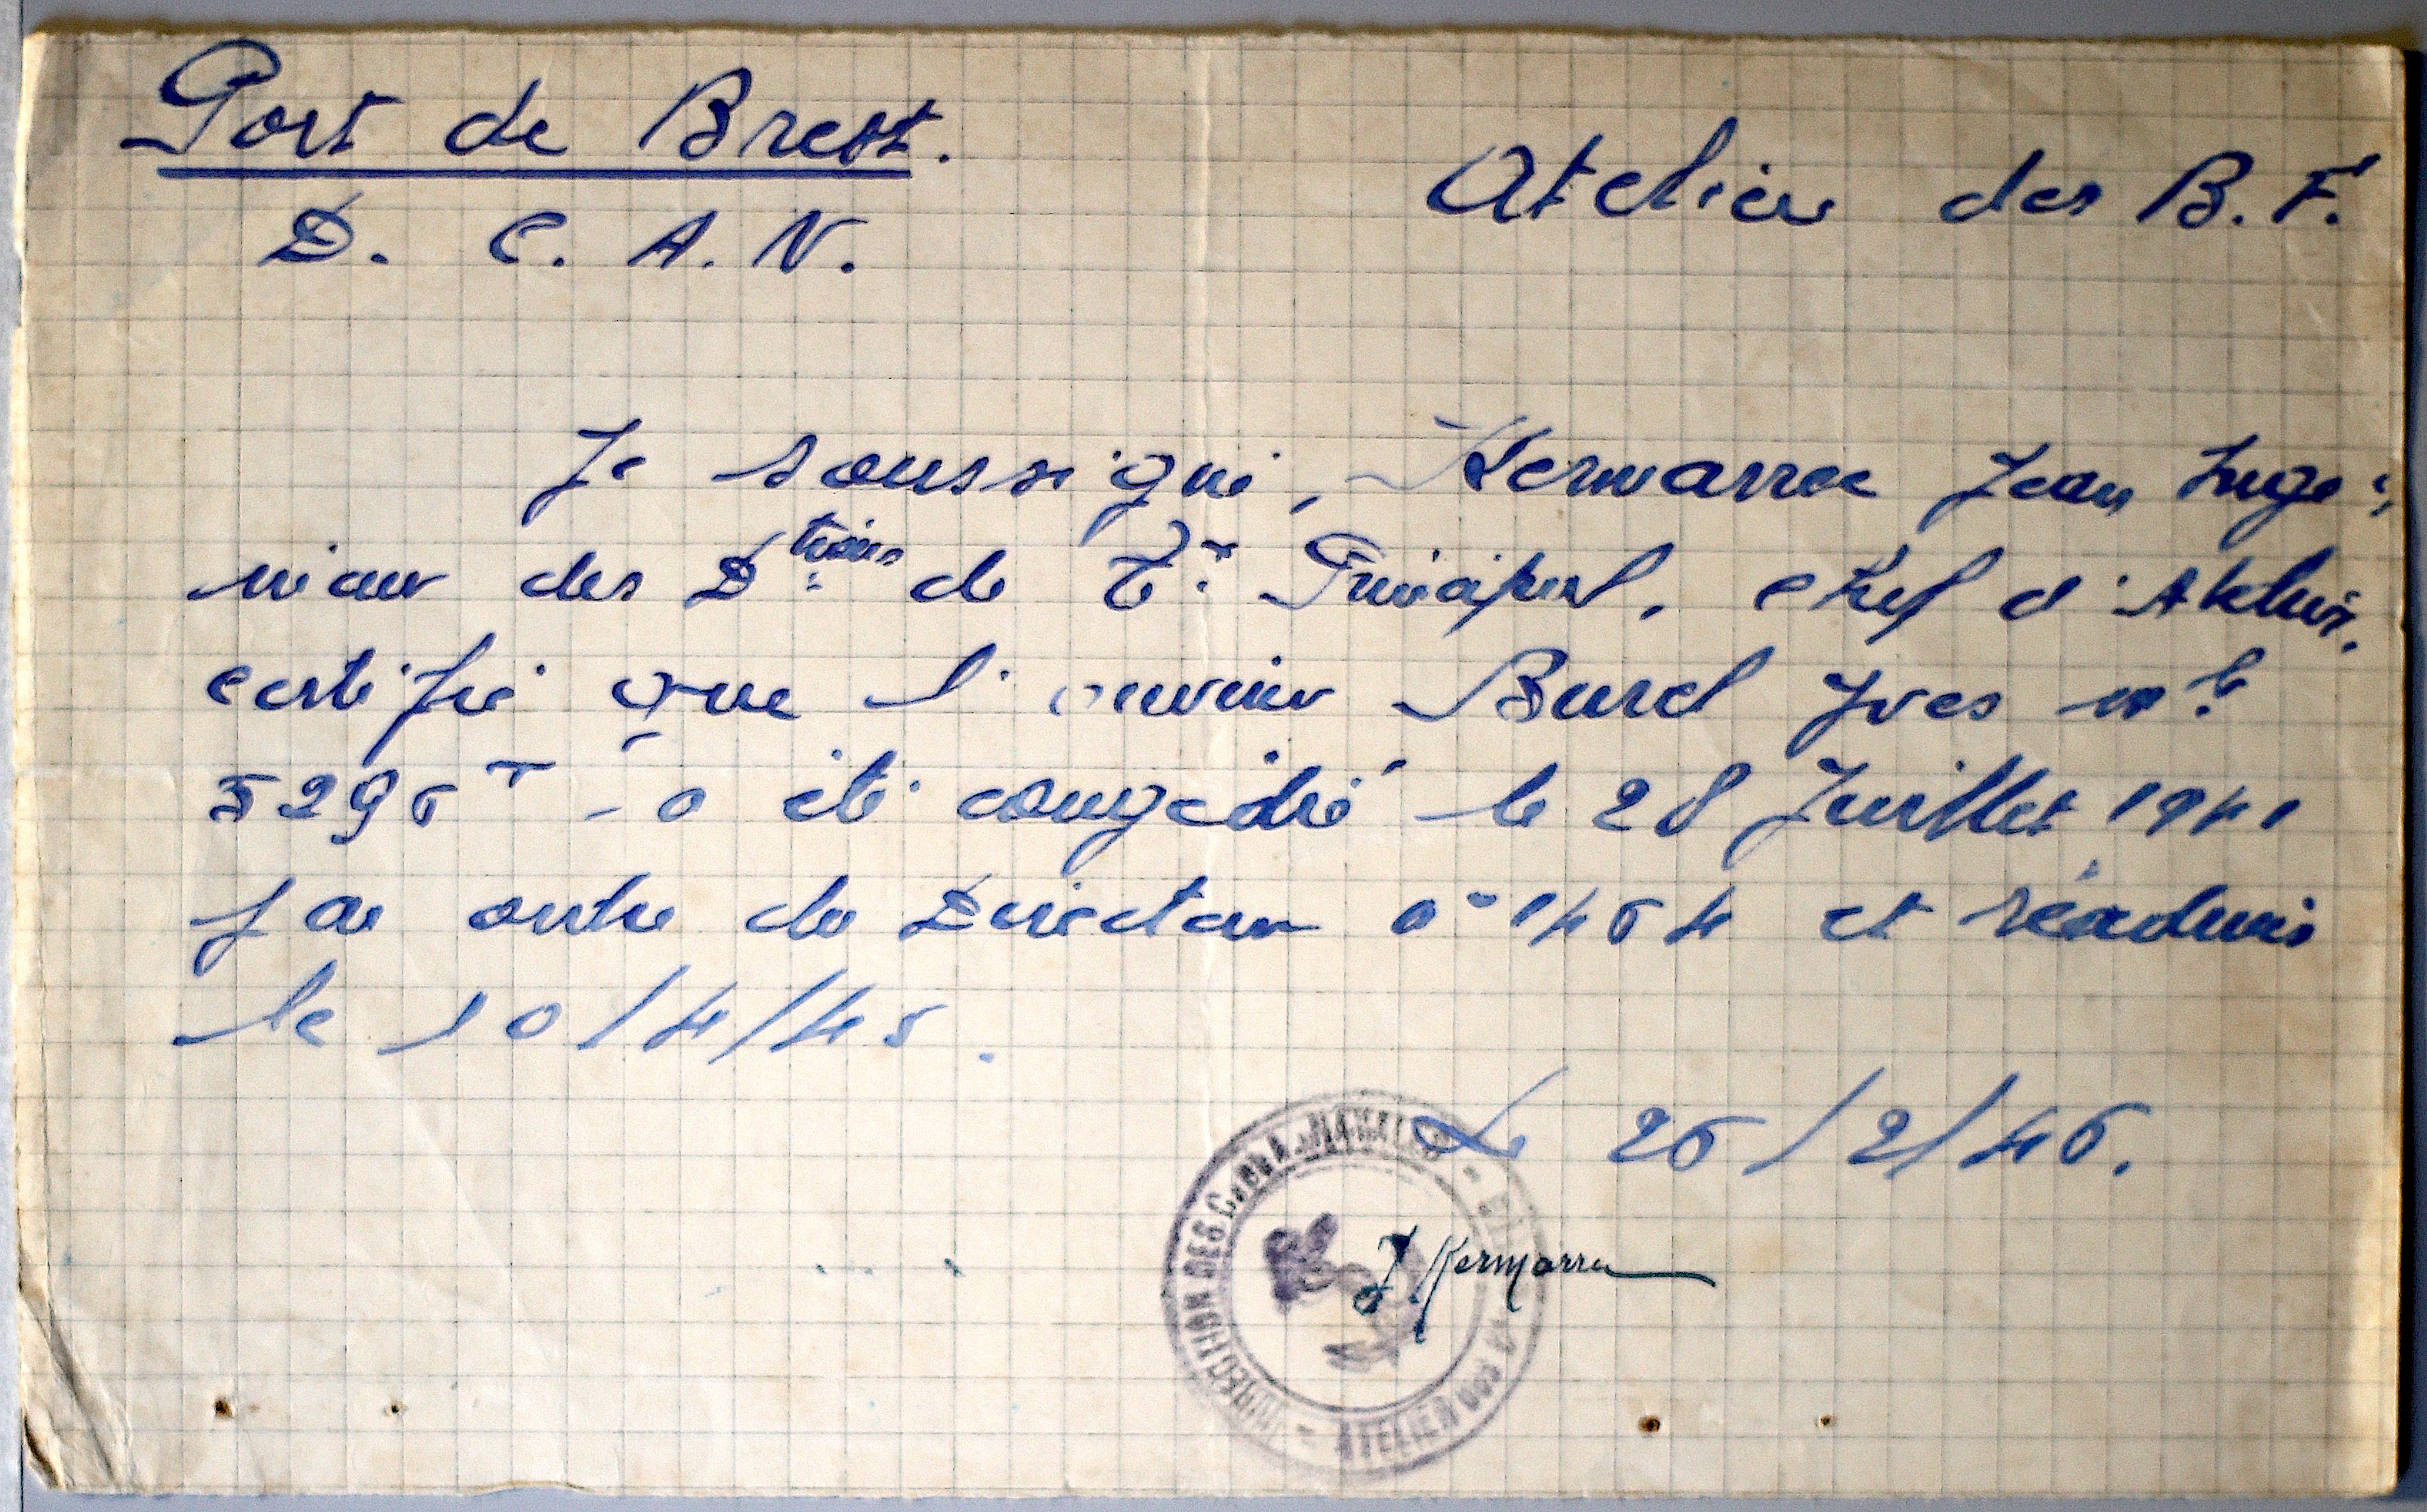 Port de Brest.
Atelier des B. F.
D. C. A. N.
Je soussigné, Kermarrec Jean Ingé-
nieur des D.tions de T.x Principal, chef d'Atelier.
certifie que l'ouvrier Burel Yves mle
a été congédié le 28 Juillet 1941
par ordre de Directeur et réadmis
le 10/4/45.
Le 26/2/46.
J. Kermarrec
DIRECTION DES NAVALES
ATELIER DES